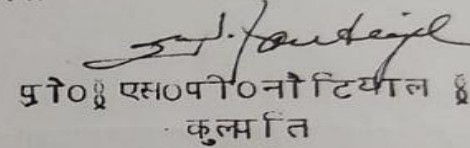 प्रो० एस०पी०नौटियाल
कुलपति